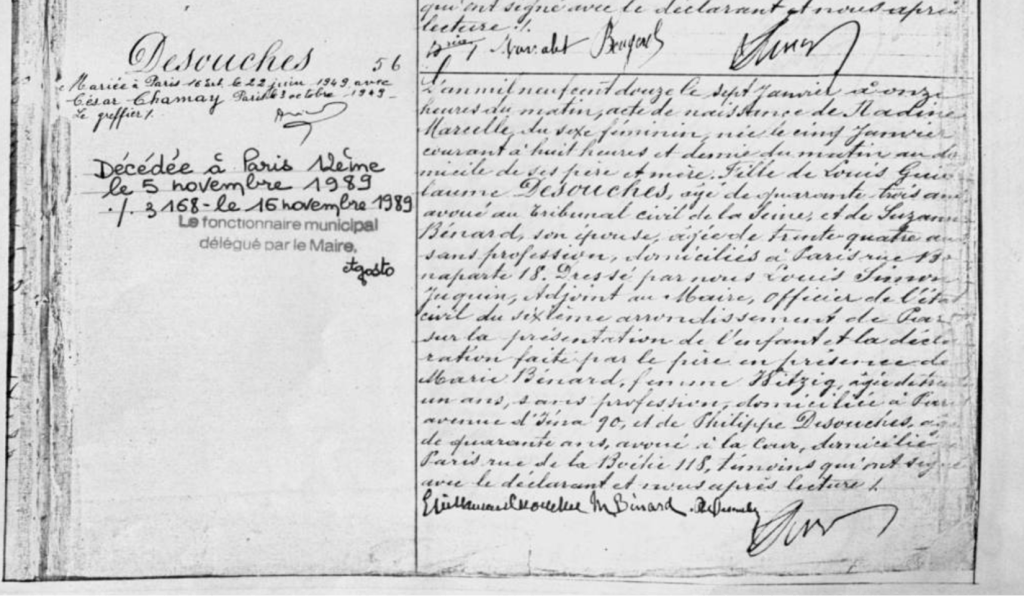 qui ont signé avec le déclarant et nous après
lecture ./.
Desouches 56
Mariée à Paris 16 arrt. le 22 juin 1949 avec
César Chamay Paris 3 octobre 1949-
Le greffier ./.
Décédée à Paris 12ème
le 5 novembre 1989
./. 3168 - le 16 novembre 1989
Le fonctionnaire municipal
délégué par le Maire,
L'an mil neuf cent douze le sept Janvier à onze
heures du matin, acte de naissance de Nadine
Marcelle, du sexe féminin, née le cinq Janvier
courant à huit heures et demie du matin au do
micile de ses père et mère. Fille de Louis Guil
laume Desouches, âgé de quarante trois ans
avoué au Tribunal civil de la Seine, et de Suzanne
Bénard, son épouse, âgée de trente quatre ans
sans profession, domiciliés à Paris rue Bo
naparte 18. Dressé par nous Louis Simon
Juquin, Adjoint au Maire, officier de l'état
civil du sixième arrondissement de Paris
sur la présentation de l'enfant et la décla
ration faite par le père en présence de
Marie Bénard, femme Hitzig, âgée de trente
un ans, sans profession, domiciliée à Paris
avenue d'Iéna 90, et de Philippe Desouches, âgé
de quarante ans, avoué à la Cour, domicilié
Paris rue de la Boëtie 118, témoins qui ont signé
avec le déclarant et nous après lecture ./.
M Bénard